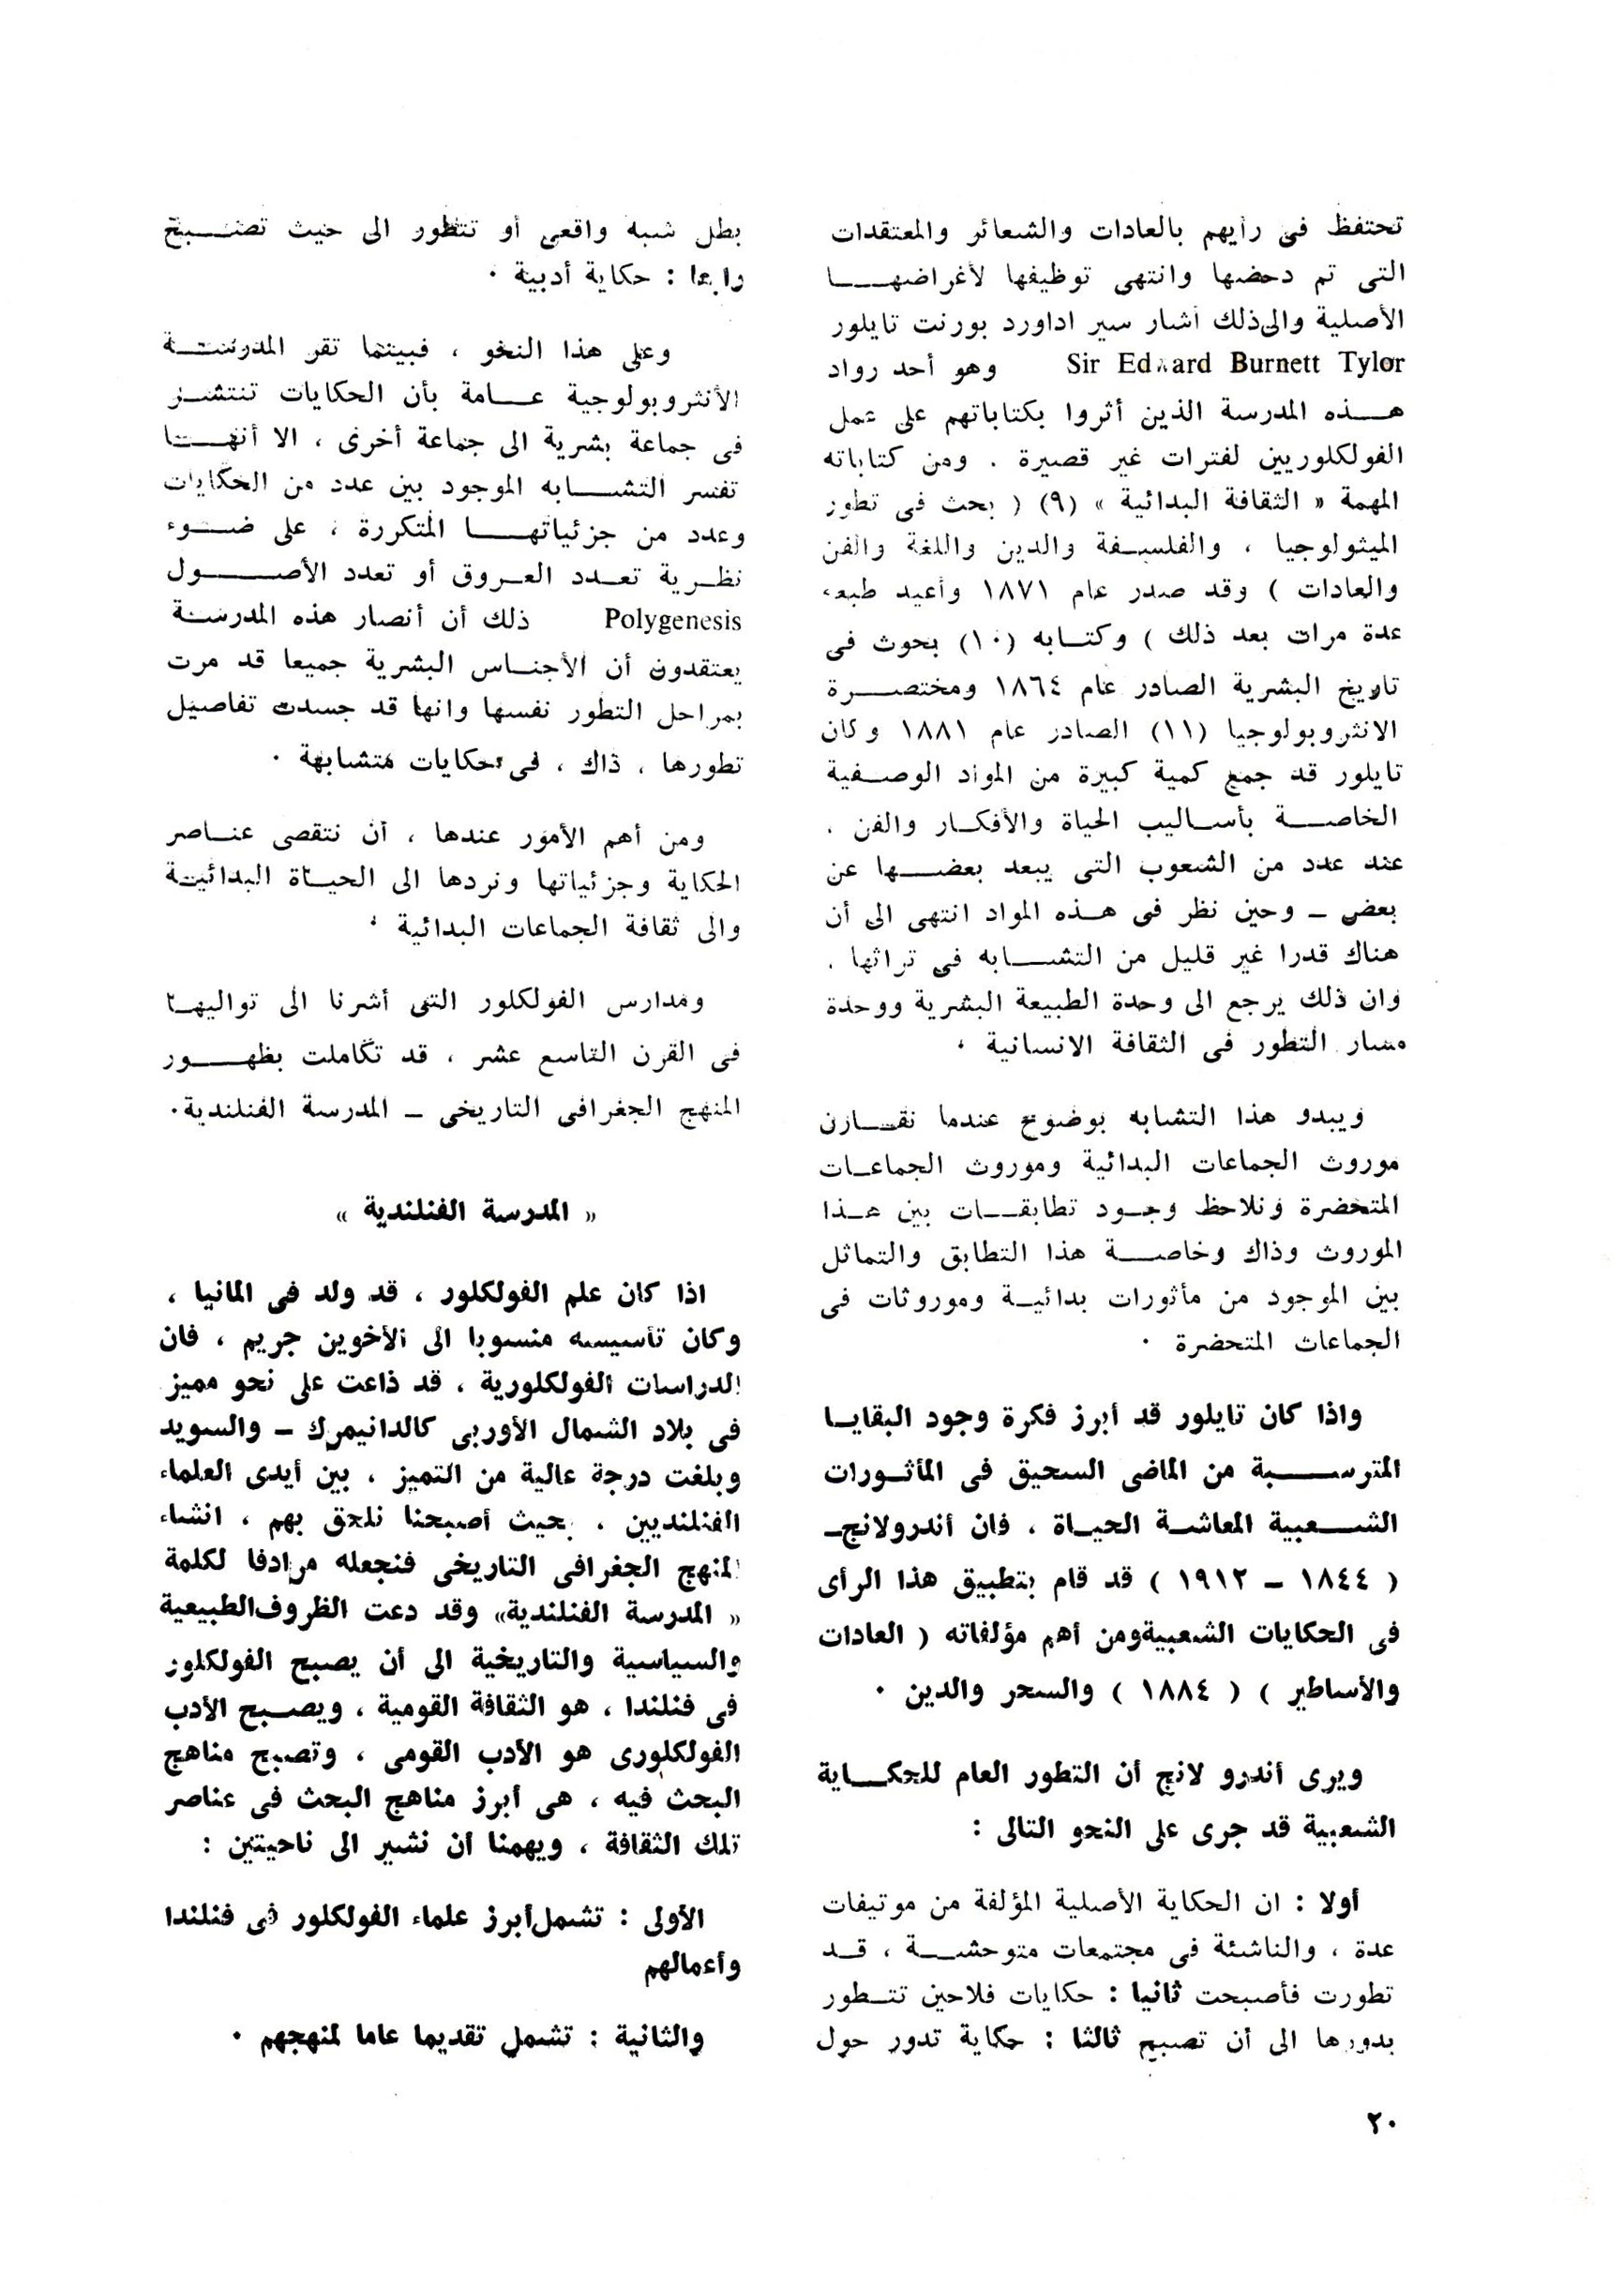 تحتفظ فى رأيهم بالعادات والشعائر والمعتقدات
التى تم دحضها وانتهى توظيفها لأغراضها
الأصلية والى ذلك أشار سير اداورد بورنت تايلور
Sir Edward Burnett Tylor وهو أحد رواد
هذه المدرسة الذين أثروا بكتاباتهم على عمل
الفولكلوريين لفترات غير قصيرة . ومن كتاباته
المهمة « الثقافة البدائية » (٩) ( بحث فى تطور
الميثولوجيا ، والفلسفة والدين واللغة والفن
والعادات ) وقد صدر عام ١٨٧١ وأعيد طبعه
عدة مرات بعد ذلك ) وكتابه (١٠) بحوث فى
تاريخ البشرية الصادر عام ١٨٦٤ ومختصرة
الانثروبولوجيا (١١) الصادر عام ١٨٨١ وكان
تايلور قد جمع كمية كبيرة من المواد الوصفية
الخاصة بأساليب الحياة والأفكار والفن .
عند عدد من الشعوب التى يبعد بعضها عن
بعض – وحين نظر فى هذه المواد انتهى الى أن
هناك قدرا غير قليل من التشابه فى تراثها .
وان ذلك يرجع الى وحدة الطبيعة البشرية ووحدة
مسار التطور فى الثقافة الانسانية .
ويبدو هذا التشابه بوضوح عندما نقارن
موروث الجماعات البدائية وموروث الجماعات
المتحضرة ونلاحظ وجود تطابقات بين هذا
الموروث وذاك وخاصة هذا التطابق والتماثل
بين الموجود من مأثورات بدائية وموروثات فى
الجماعات المتحضرة .
واذا كان تايلور قد أبرز فكرة وجود البقايا
المترسبة من الماضى السحيق فى المأثورات
الشعبية المعاشة الحياة ، فان أندرولانج–
( ١٨٤٤ – ١٩١٢ ) قد قام بتطبيق هذا الرأى
فى الحكايات الشعبية ومن أهم مؤلفاته ( العادات
والأساطير ) ( ١٨٨٤ ) والسحر والدين .
ويرى أندرو لانج أن التطور العام للحكاية
الشعبية قد جرى على النحو التالى :
أولا : ان الحكاية الأصلية المؤلفة من موتيفات
عدة ، والناشئة فى مجتمعات متوحشة ، قد
تطورت فأصبحت ثانيا : حكايات فلاحين تتطور
بدورها الى أن تصبح ثالثا : حكاية تدور حول
بطل شبه واقعى أو تتطور الى حيث تصبح
رابعا : حكاية أدبية .
وعلى هذا النحو ، فبينما تقر المدرسة
الأنثروبولوجية عامة بأن الحكايات تنتشر
فى جماعة بشرية الى جماعة أخرى ، الا أنها
تفسر التشابه الموجود بين عدد من الحكايات
وعدد من جزئياتها المتكررة ، على ضوء
نظرية تعدد العروق أو تعدد الأصول
Polygenesis ذلك أن أنصار هذه المدرسة
يعتقدون أن الأجناس البشرية جميعا قد مرت
بمراحل التطور نفسها وانها قد جسدت تفاصيل
تطورها ، ذاك ، فى حكايات متشابهة .
ومن أهم الأمور عندها ، أن نتقصى عناصر
الحكاية وجزئياتها ونردها الى الحياة البدائية
والى ثقافة الجماعات البدائية .
ومدارس الفولكلور التى أشرنا الى تواليها
فى القرن التاسع عشر ، قد تكاملت بظهور
المنهج الجغرافى التاريخى – المدرسة الفنلندية.
« المدرسة الفنلندية »
اذا كان علم الفولكلور ، قد ولد فى المانيا ،
وكان تأسيسه منسوبا الى الأخوين جريم ، فان
الدراسات الفولكلورية ، قد ذاعت على نحو مميز
فى بلاد الشمال الأوربى كالدانيمرك – والسويد
وبلغت درجة عالية من التميز ، بين أيدى العلماء
الفنلنديين ، بحيث أصبحنا نلحق بهم ، انشاء
المنهج الجغرافى التاريخى فنجعله مرادفا لكلمة
« المدرسة الفنلندية» وقد دعت الظروف الطبيعية
والسياسية والتاريخية الى أن يصبح الفولكلور
فى فنلندا ، هو الثقافة القومية ، ويصبح الأدب
الفولكلورى هو الأدب القومى ، وتصبح مناهج
البحث فيه ، هى أبرز مناهج البحث فى عناصر
تلك الثقافة ، ويهمنا أن نشير الى ناحيتين :
الأولى : تشمل أبرز علماء الفولكلور فى فنلندا
وأعمالهم
والثانية : تشمل تقديما عاما لمنهجهم .
٢٠